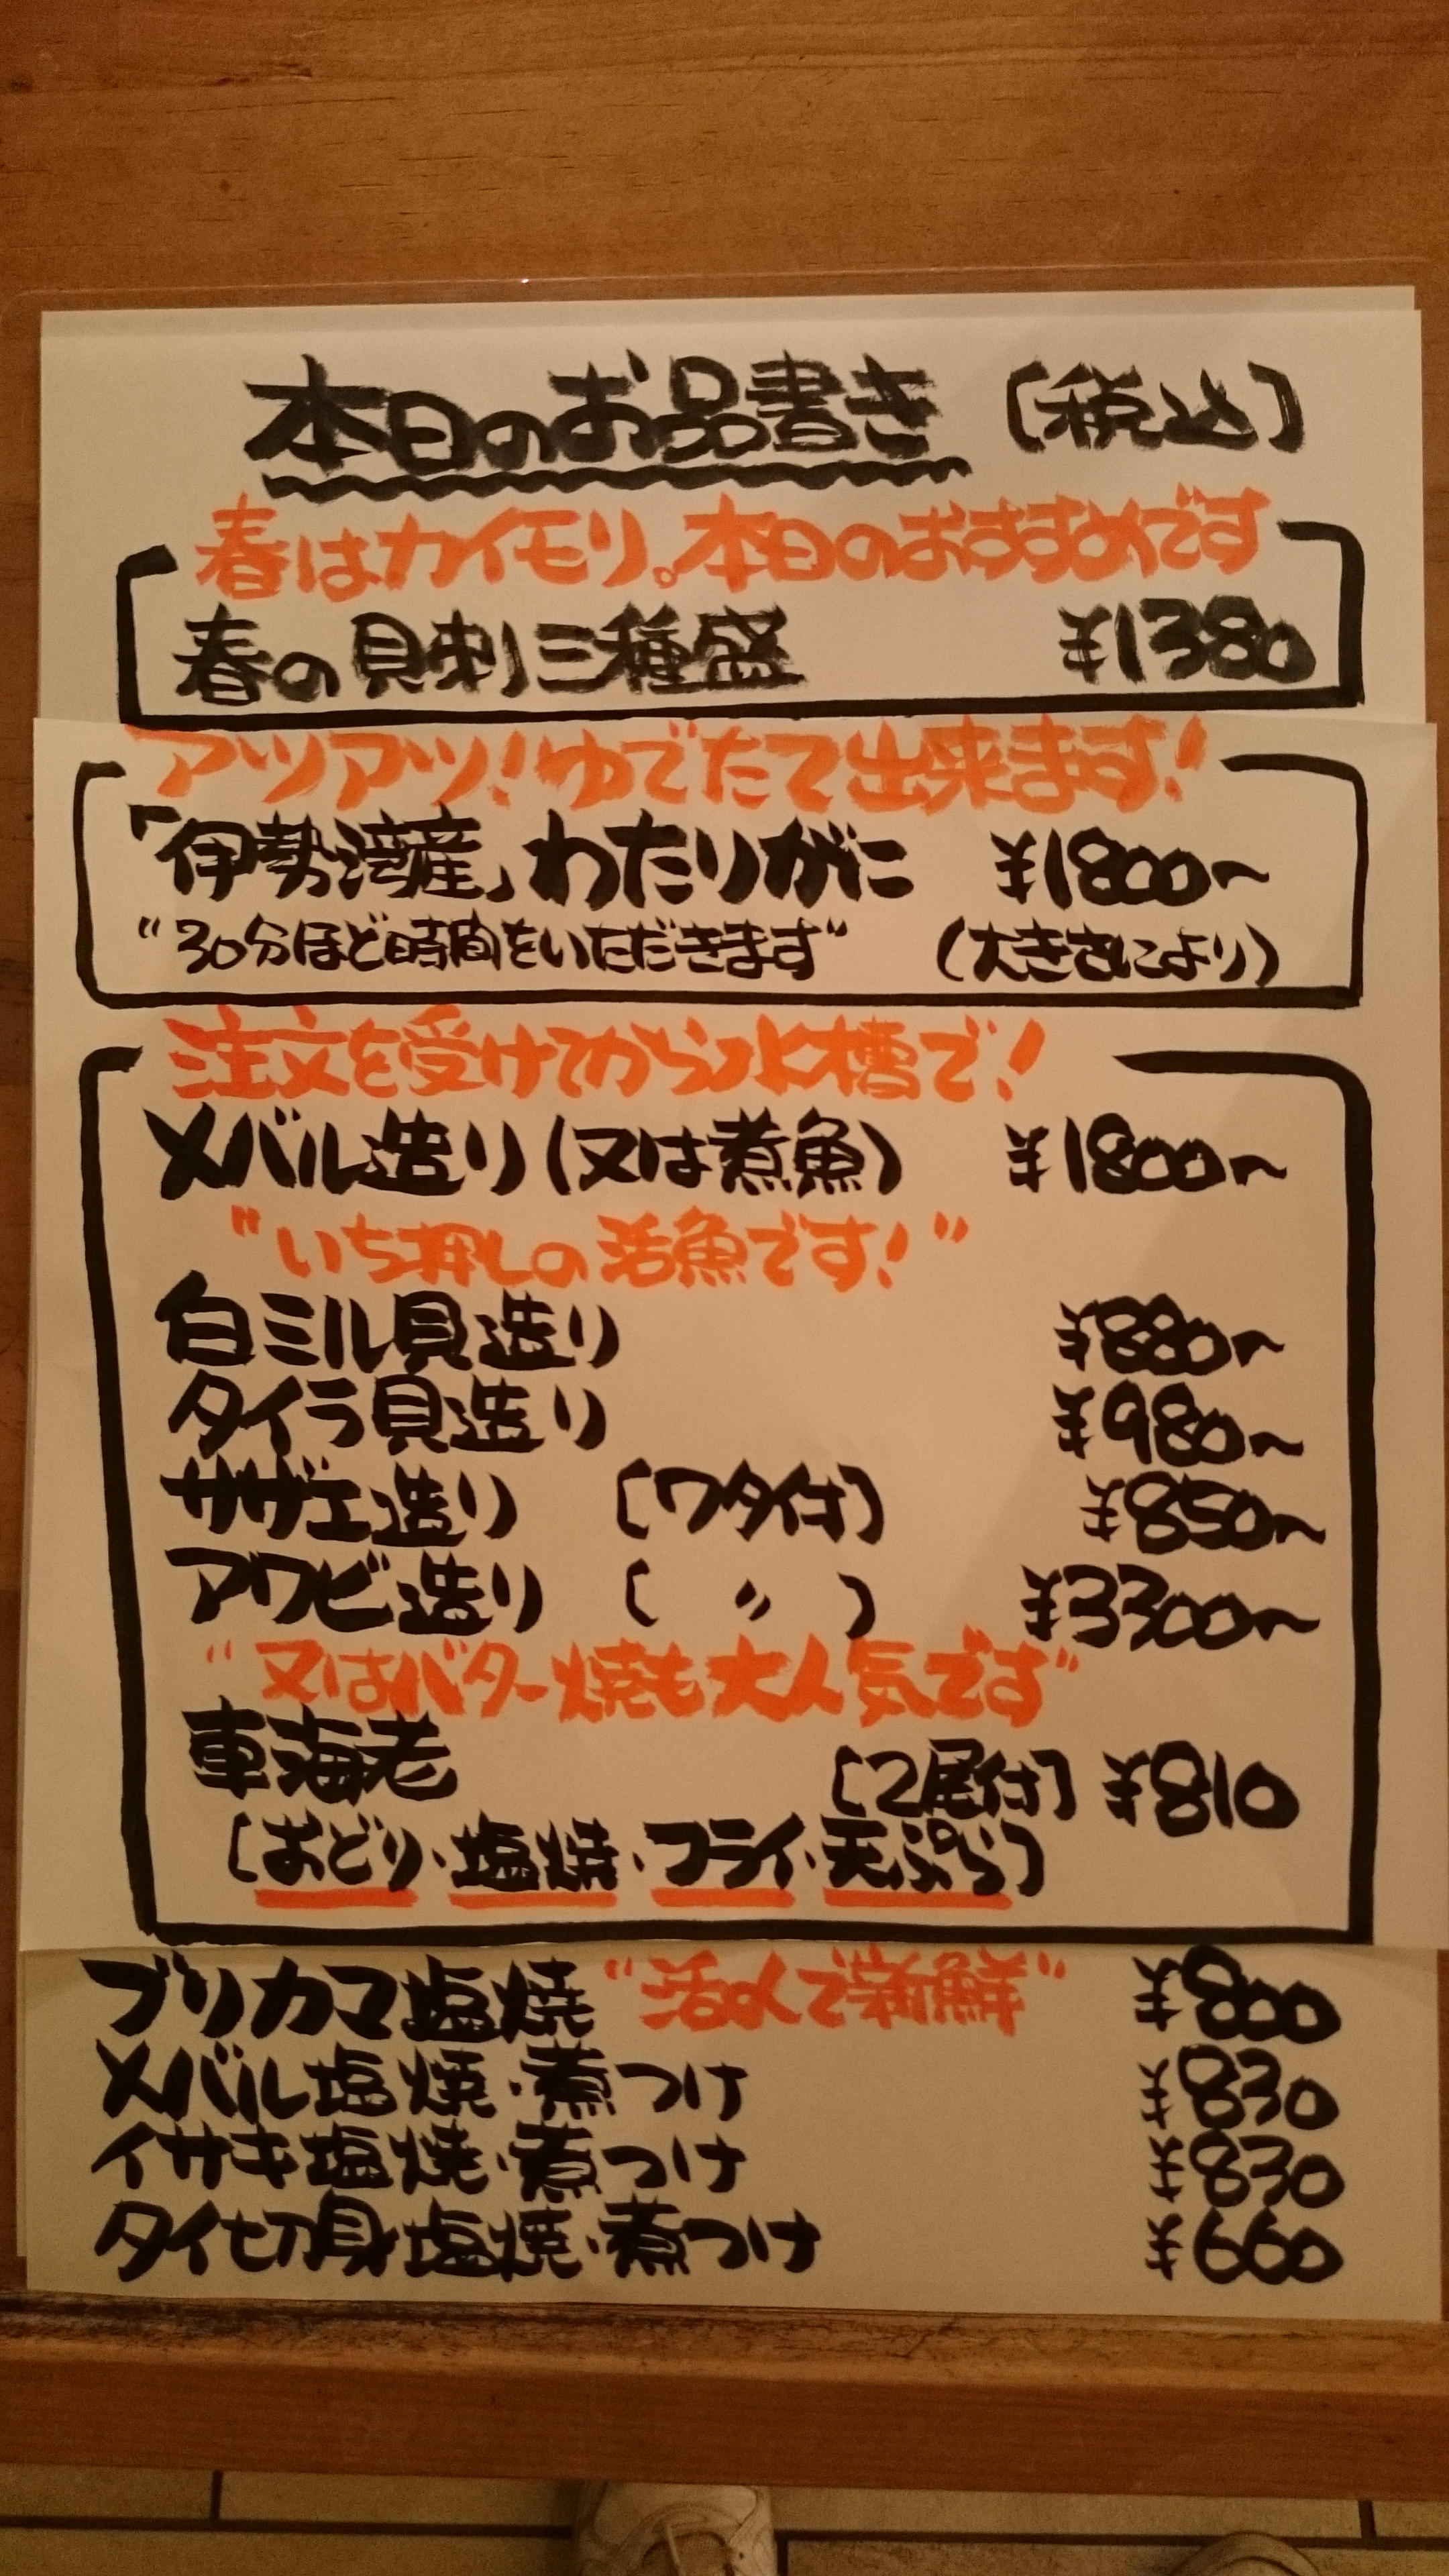 本日のお品書き [税込]
春はカイモリ。本日のおすすめです
春の貝刺三種盛 ¥1380
アツアツ!ゆでたて出来ます!
「伊勢湾産」わたりがに ¥1800〜
"30分ほど時間をいただきます" (大きさにより)
注文を受けてから水槽で!
メバル造り(又は煮魚) ¥1800〜
"いち押しの活魚です!"
白ミル貝造り ¥880〜
タイラ貝造り ¥980〜
サザエ造り [ワタ付] ¥850〜
アワビ造り [〃] ¥3300〜
"又はバター焼も大人気です"
車海老 [2尾付] ¥810
[おどり・塩焼・フライ・天ぷら]
ブリカマ塩焼 "活〆で新鮮" ¥800
メバル塩焼・煮つけ ¥830
イサキ塩焼・煮つけ ¥830
タイ切身塩焼・煮つけ ¥660